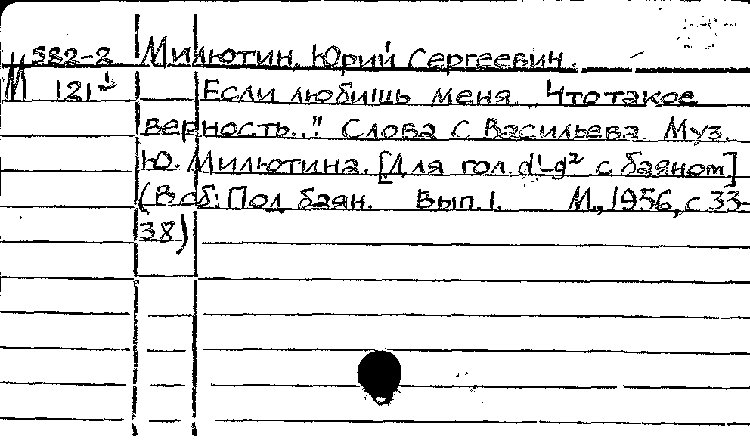 М 382-2 Милютин, Юрий Сергеевич.
121 Если любишь меня. Что такое
верность..." Слова С Васильева Муз.
Ю. Милютина. [Для гол. d¹-g² с баяном]
(В сб: Пол баян. Вып. 1. М., 1956, с 33-
38)